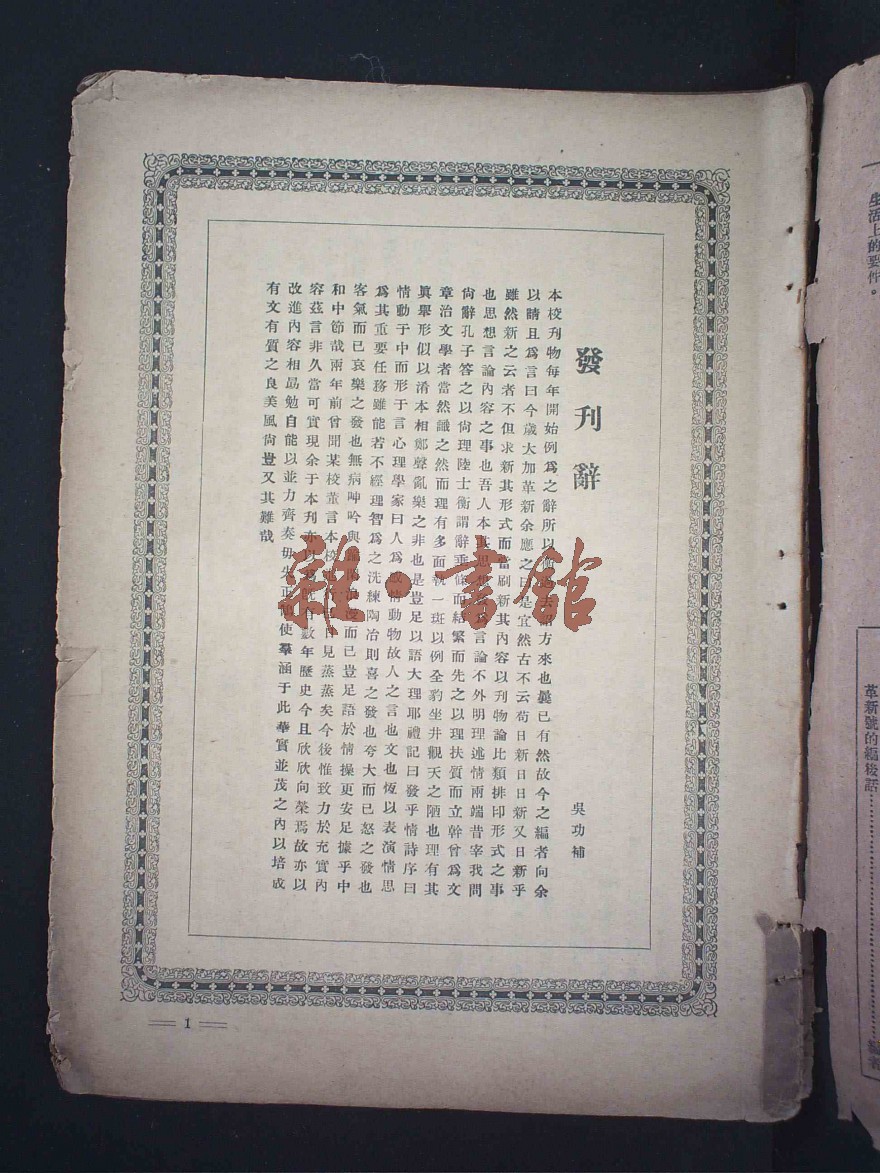 生活上的要件。
革新號的編後話……………………編者
發刊辭
吳功補
本校刊物每年開始例為之辭所以
方來也曩已有然故今之編者向余
以請且為言曰今歲大加革新余應之曰是宜然古不云苟日新日日新又日新乎
雖然新之云者不但求新其形式而當刷新其內容以刊物論比類排印形式之事
也思想言論內容之事也吾人本其思想
為言論不外明理述情兩端昔宰我問
尙辭孔子答之以尙理陸士衡謂辭垂條而結繁而先之以理扶質而立幹曾為文
章治文學者當然識之然而理有多面執一斑以例全豹坐井觀天之陋也理有其
眞舉形似以淆本相鄭聲亂樂之非也是豈足以語大理耶禮記曰發乎情詩序曰
情動于中而形于言心理學家曰人為感情動物故人之言也文也恆以表演情思
為其重要任務雖能若不經理智為之洗練陶冶則喜之發也夸大而已怒之發也
客氣而已哀樂之發也無病呻吟與
而已豈足語於情操更安足據乎中
和中節哉兩年前曾聞某校董言本校
見蒸蒸矣今後惟致力於充實內
容茲言非久當可實現余于本刊亦以為既有數年歷史今且欣欣向榮焉故亦以
改進內容相勗勉自能以並力齊奏毋失正
使羣涵于此華實並茂之內以培成
有文有質之良美風尙豈又其難哉
1
雜·書館